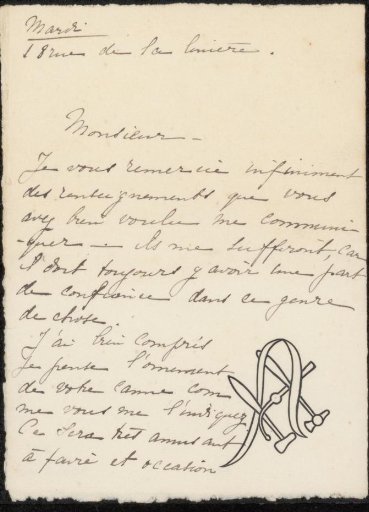 Mardi
18 rue de la
Monsieur -
Je vous remercie infiniment
des renseignements que vous
avez bien voulu me communi
-quer — ils me suffiront, car
il doit toujours y avoir une part
de confiance dans ce genre
de chose.
J'ai bien compris
Je pense l'ornement
de votre canne com
me vous me l'indiquez
Ce sera très amusant
à faire et occasion